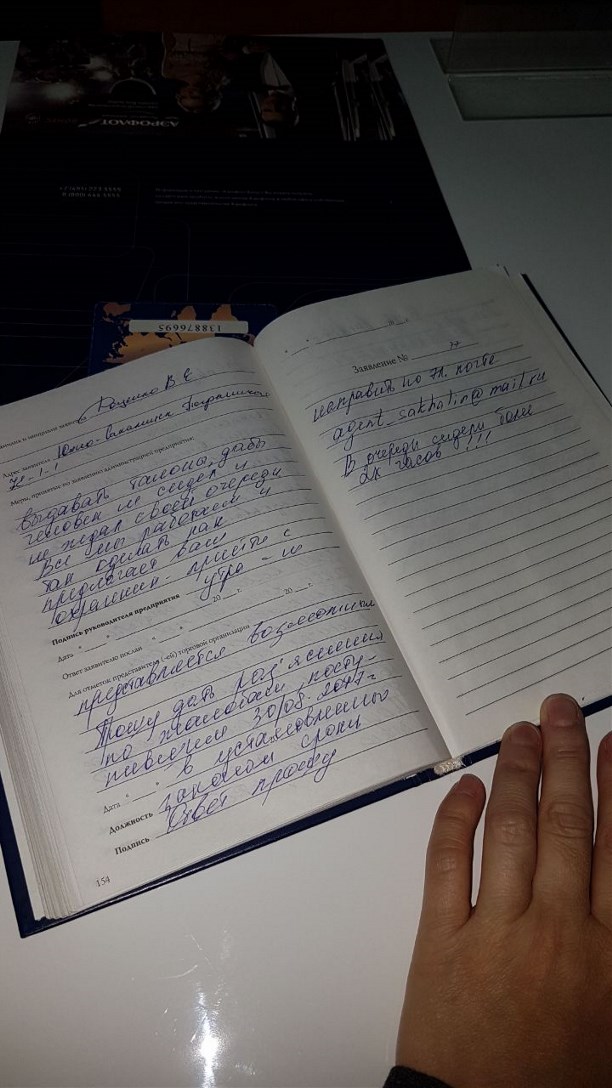 АЭРОФЛОТ
138876695
Роценко В Е
Адрес заявителя Южно-Сахалинск Пограничная
72-1-1
Меры, принятые по заявлению администрацией предприятия:
выдавать талоны, дабы
человек не сидел и
не ждал своей очереди
Все мы работаем и
так сделать как
предлагает ваш
охранник - прийти с
утра - не
Подпись руководителя предприятия
Дата " " 20 г.
Ответ заявителю послан " " 20 г.
Для отметок представителя (-ей) торговой организации
представляется возможным
Прошу дать раз'яснения
по жалобам, посту-
пившим 30/05-2017г
в установленные
законом сроки
Ответ прошу
Дата " "
Должность
Подпись
154
" "
Заявление №
направить по эл. почте
agent_sakhalin@mail.ru
В очереди сидели более
2х часов !!!